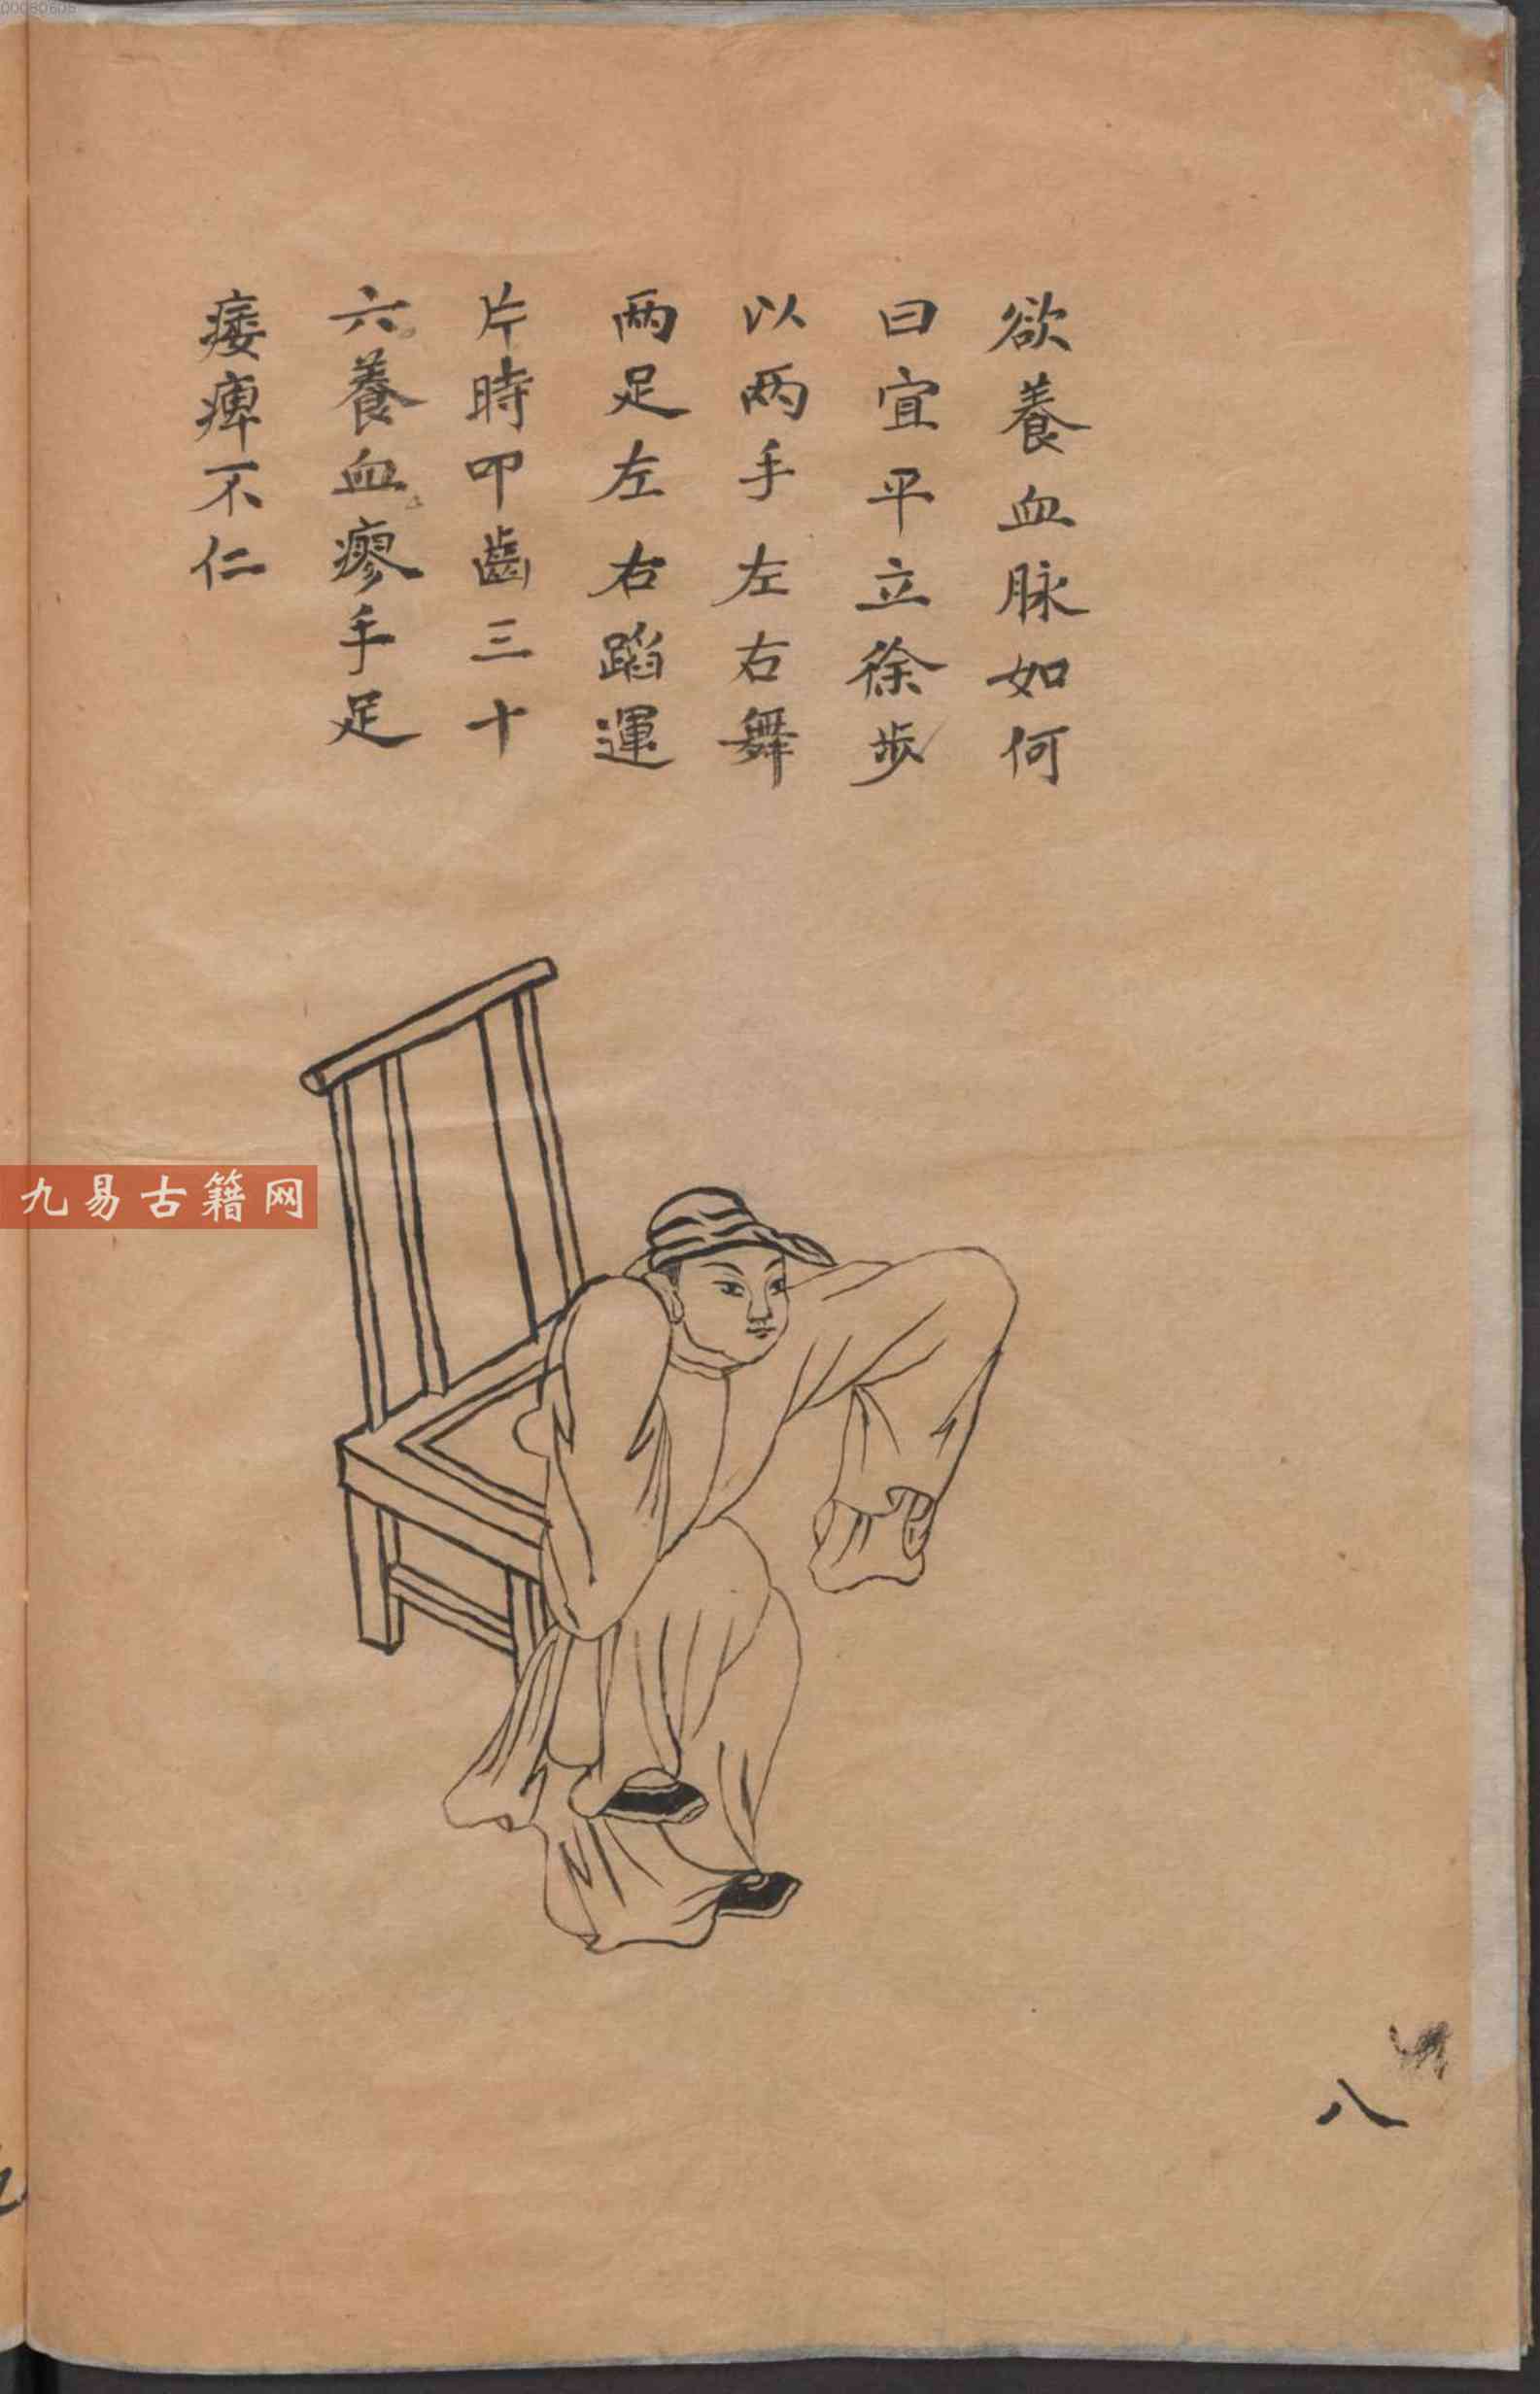 欲養血脉如何
曰宜平立徐步
以两手左右舞
两足左右蹈運
片時叩齒三十
六養血瘳手足
痿痺不仁
八
九易古籍网
00080605